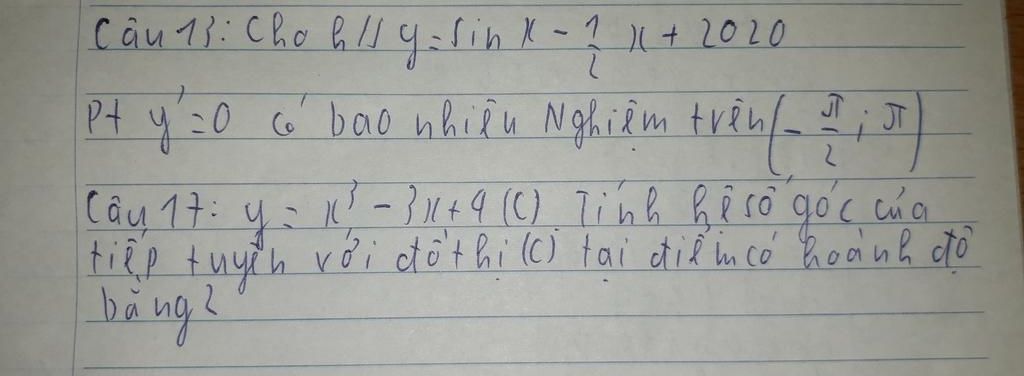 Câu 13: Cho h/s y = sin x - 1/2 x + 2020
Pt y' = 0 có bao nhiêu Nghiệm trên (- π/2 ; π)
Câu 17: y = x³ - 3x + 4 (C) Tính hệ số góc của
tiếp tuyến với đồ thị (C) tại điểm có hoành độ
bằng 2